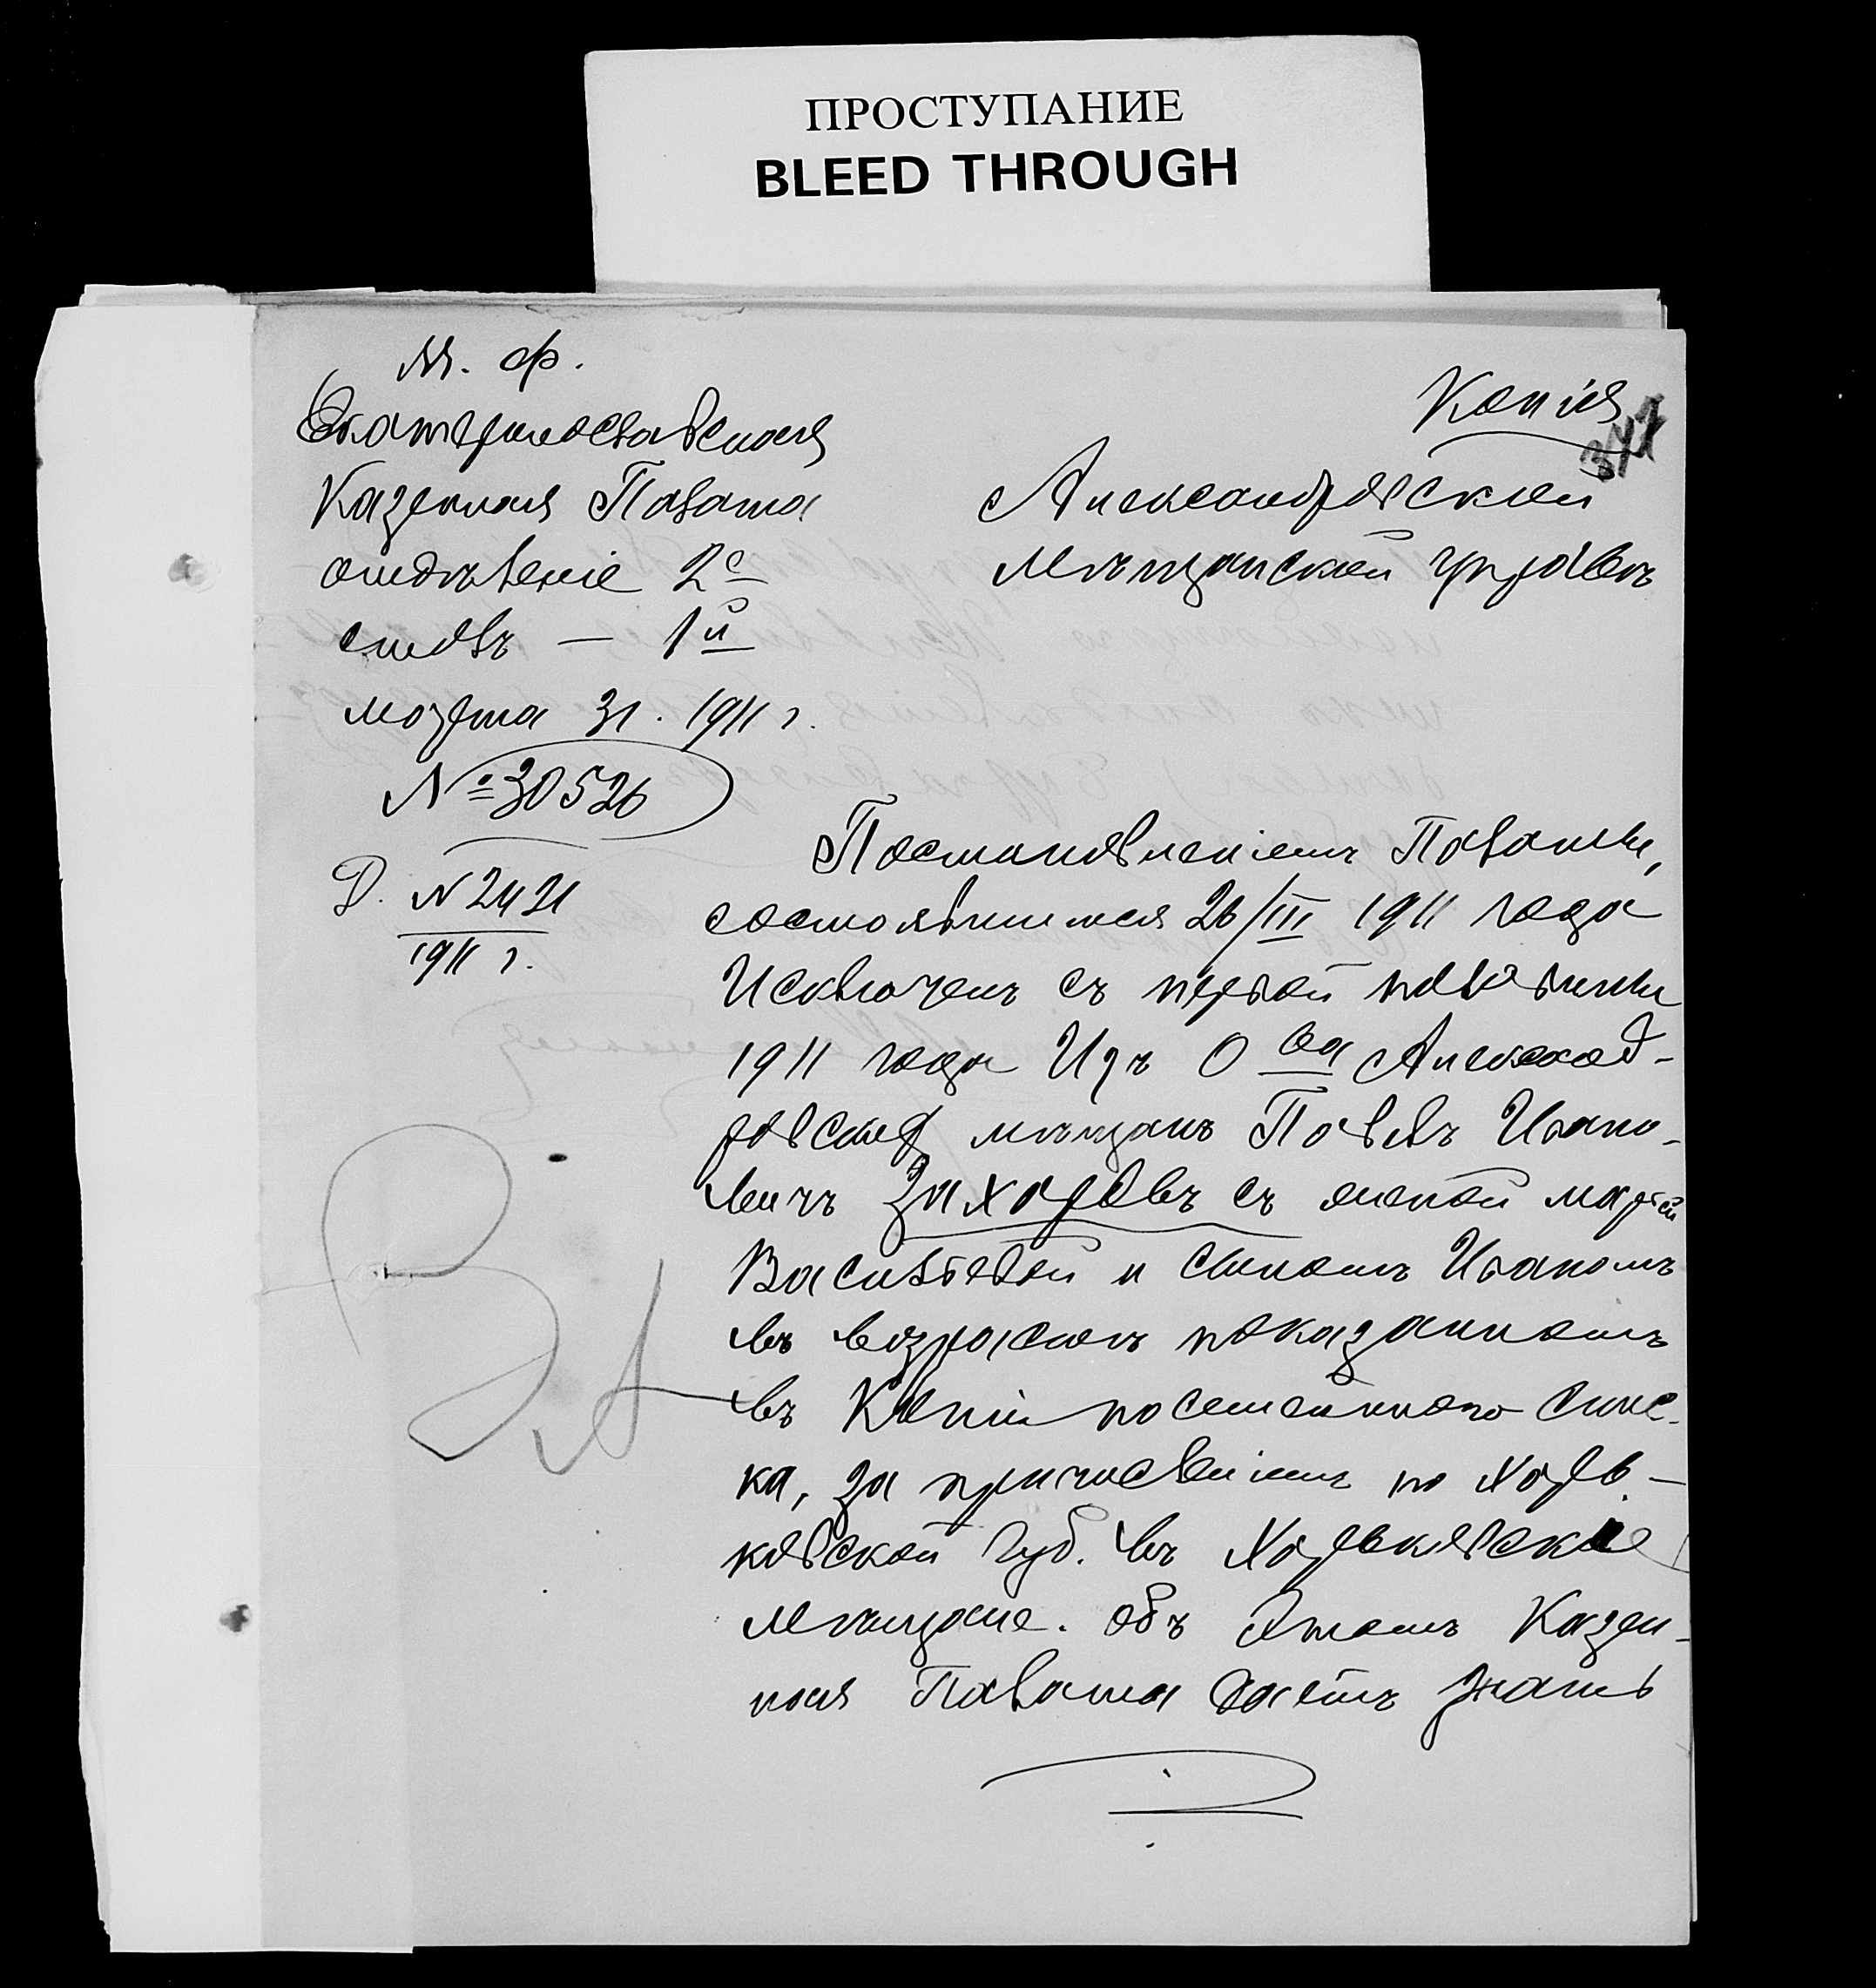 ПРОСТУПАНИЕ
BLEED THROUGH
М. Ф.
Екатеринославская
Казенная Палата
отдѣленіе 2е
столъ — 1й
марта 31. 1911 г.
№ 30526
Д. № 2421
1911 г.
Копія
347
Александровской
мѣщанской управѣ
Постановленіемъ Палаты,
состоявшимся 26/III 1911 года
Исключенъ съ первой половины
1911 года Изъ О ва Александ-
ровских мѣщанъ Павелъ Ивано-
вичъ Захаровъ съ женой Маріей
Васильевой и сыномъ Иваномъ
въ возрастѣ показанномъ
въ Копіи посемейнаго спис-
ка, за причисленіемъ по Харь-
ковской губ. въ Харьковскіе
мѣщане. Объ этомъ Казен-
ная Палата даетъ знать